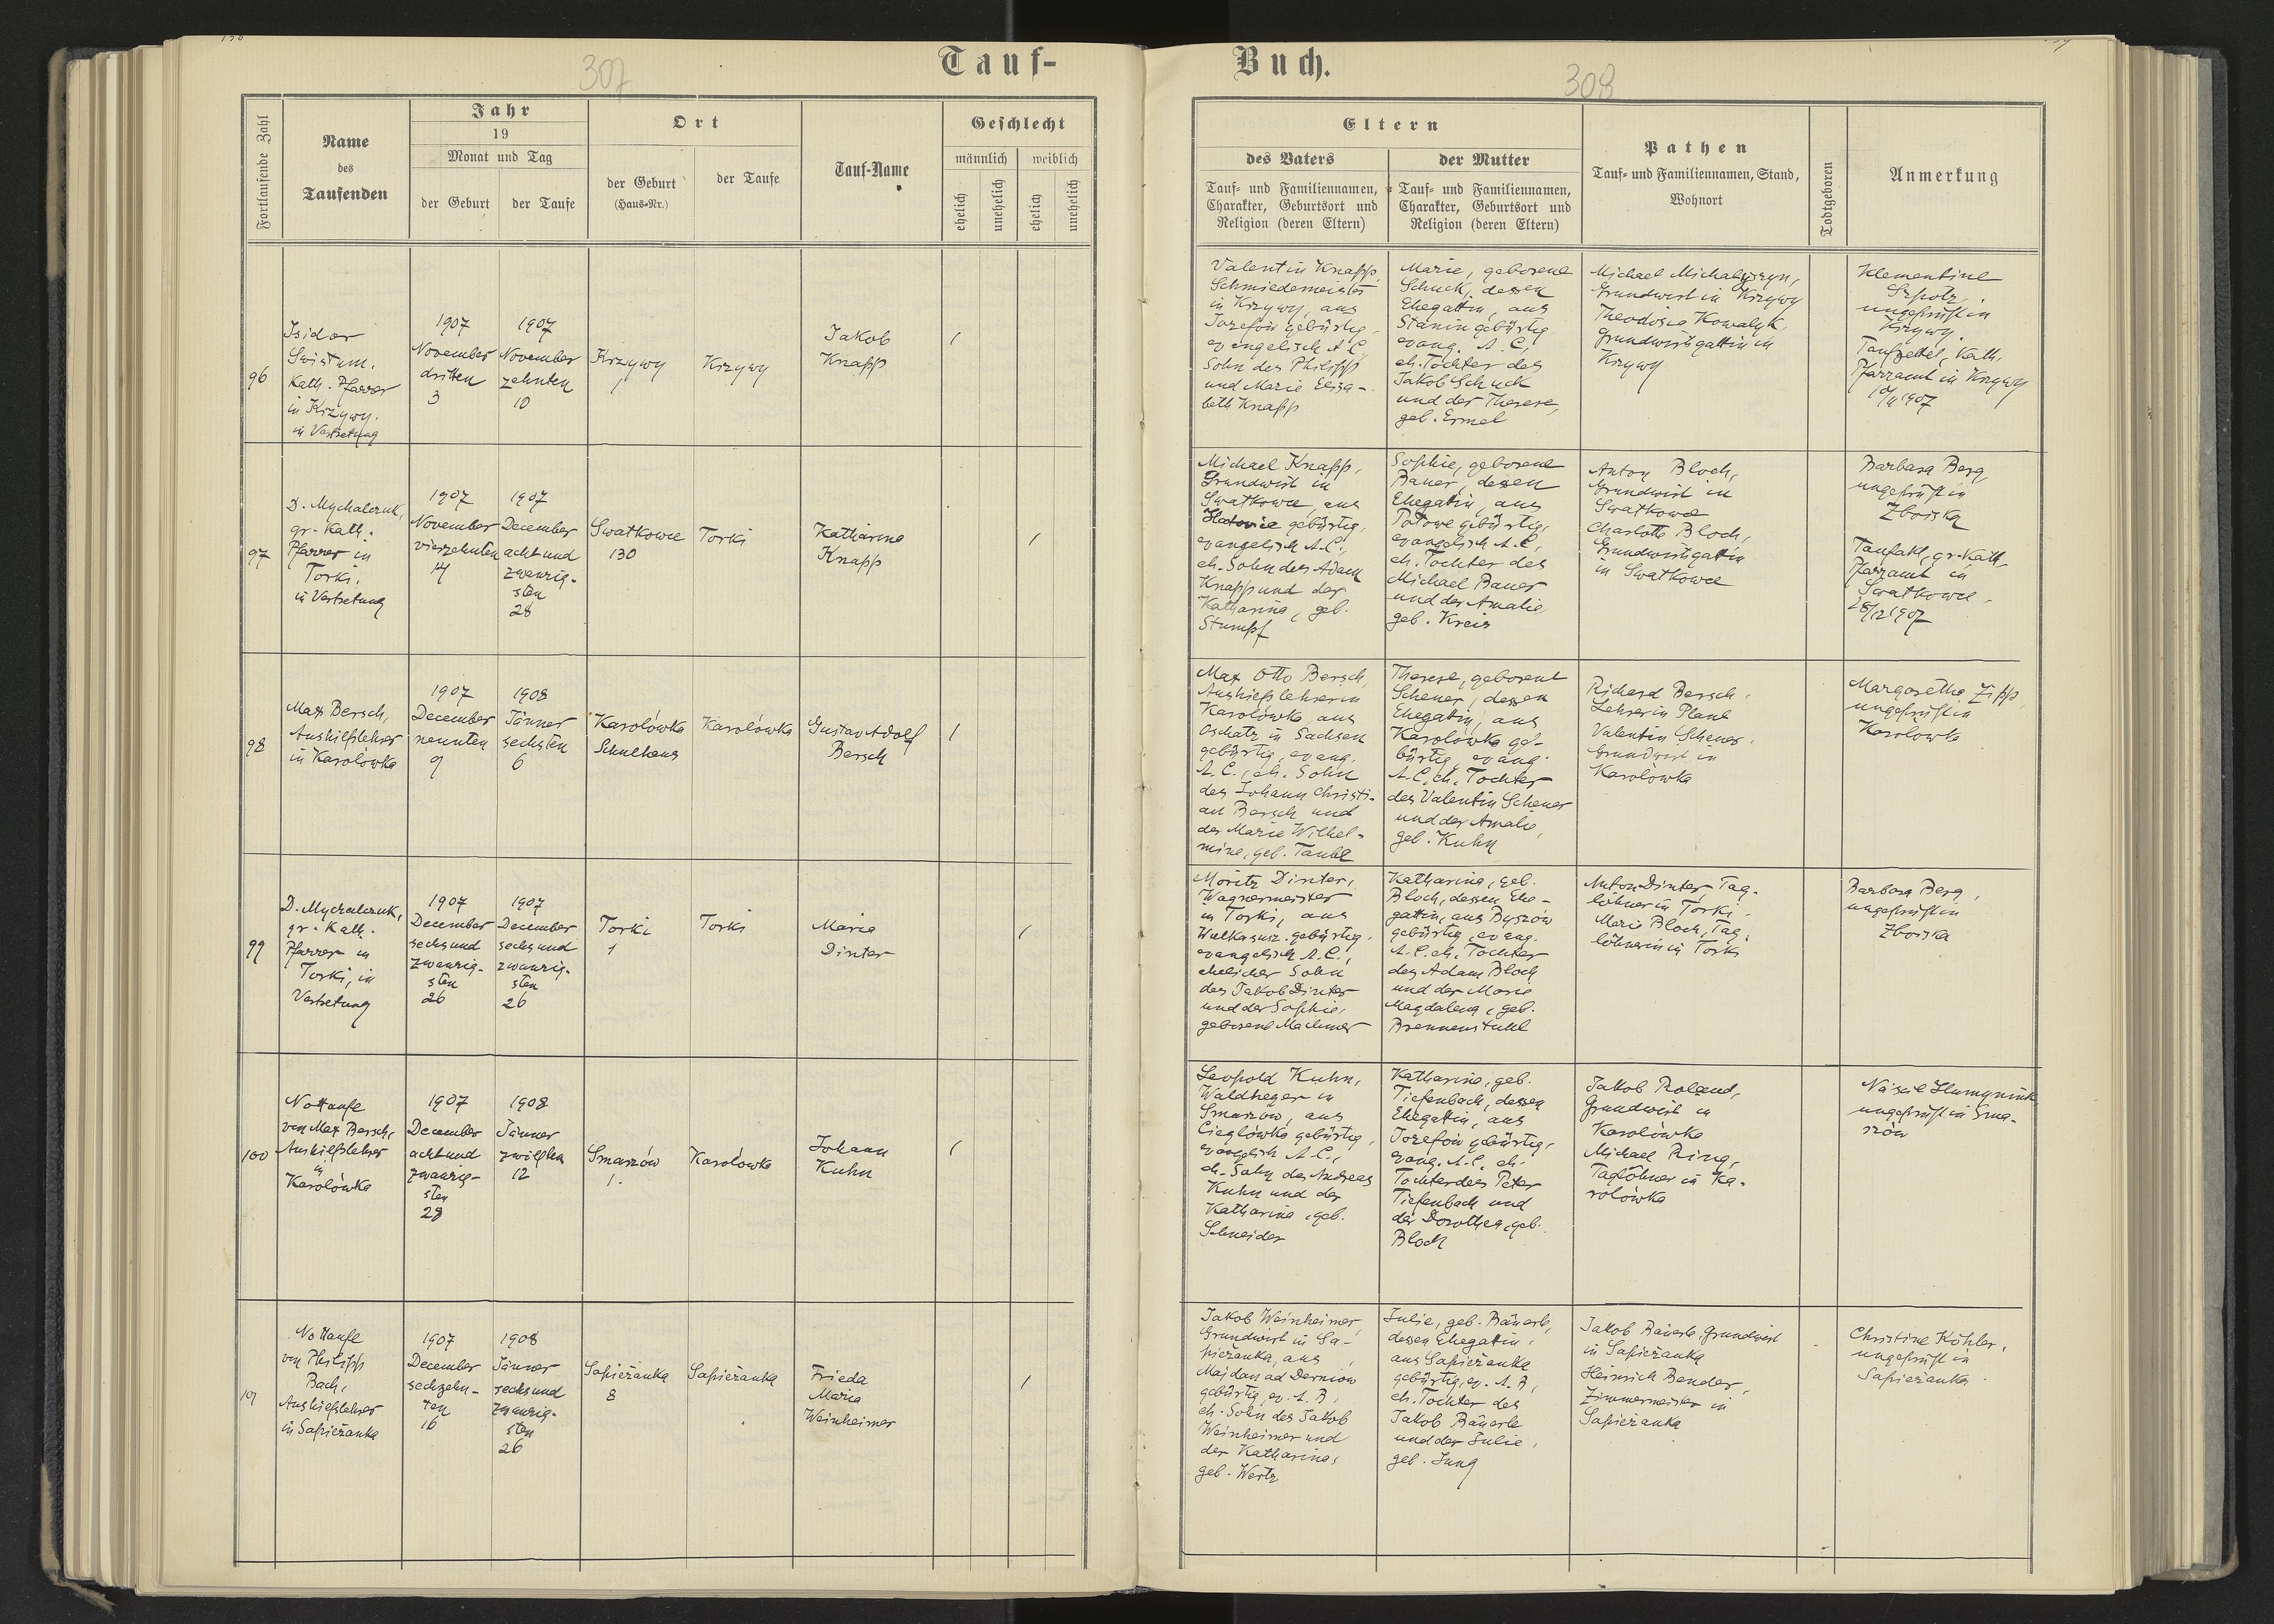 307
Tauf-
Fortlaufende Zahl
Name
des
Taufenden
Jahr
19
Monat und Tag
der Geburt
der Taufe
Ort
der Geburt
(Haus-Nr.)
der Taufe
Tauf-Name
Geschlecht
männlich
weiblich
ehelich
unehelich
ehelich
unehelich
96
Isidor
Kath. Pfarrer
in Krzywy.
in Vertretung
1907
November
dritten
3
1907
November
zehnten
10
Krzywy
Krzywy
Jakob
Knapp
1
97
D. Mychalczuk,
gr. Kath.
Pfarrer in
Torki.
in Vertretung
1907
November
vierzehnten
14
1907
December
acht und
zwanzig-
sten
28
Swatkowce
130
Torki
Katharina
Knapp
1
98
Max Bersch,
Aushilfslehrer
in Karolówka
1907
December
neunten
9
1908
Jänner
sechsten
6
Karolówka
Schulhaus
Karolówka
Gustav Adolf
Bersch
1
99
D. Mychalczuk,
gr. Kath.
Pfarrer in
Torki, in
Vertretung
1907
December
sechsund
zwanzig-
sten
26
1907
December
sechsund
zwanzig-
sten
26
Torki
1
Torki
Maria
Dinter
1
100
Nottaufe
von Max Bersch,
Aushilfslehrer
in
Karolówka
1907
December
acht und
zwanzig-
sten
28
1908
Jänner
zwölften
12
Smarzów
1.
Karolowka
Johann
Kuhn
1
101
Nottaufe
von Philipp
Bach,
Aushilfslehrer
in Sapieżanka
1907
December
sechzehn-
ten
16
1908
Jänner
sechsund
zwanzig-
sten
26
Sapieżanka
8
Sapieżanka
Frieda
Maria
Weinheimer
1
Buch.
308
Eltern
des Vaters
Tauf- und Familiennamen,
Charakter, Geburtsort und
Religion (deren Eltern)
der Mutter
Tauf- und Familiennamen,
Charakter, Geburtsort und
Religion (deren Eltern)
Pathen
Tauf- und Familiennamen, Stand,
Wohnort
Todtgeboren
Anmerkung
Valentin Knapp,
Schmiedemeister
in Krzywy, aus
Jozefów gebürtig,
evangelisch A.C.,
Sohn des Philipp
und Marie Elisa-
beth Knapp
Marie, geborene
Schuck, dessen
Ehegattin, aus
Stanin gebürtig
evang. A.C.,
eh. Tochter des
Jakob Schuck
und der Therese,
geb. Ermel
Michael Michalyszyn,
Grundwirt in Krzywy
Theodosia Kowalyk,
Grundwirtsgattin in
Krzywy
Klementine
ungeprüft in
Krzywy.
Taufzettel, Kath.
Pfarramt in Krzywy
10/11 1907
Michael Knapp,
Grundwirt in
Swatkowce, aus
gebürtig,
evangelisch A.C.,
eh. Sohn des Adam
Knapp und der
Katharina, geb.
Stumpf
Sophie, geborene
Bauer, dessen
Ehegattin, aus
Polowe gebürtig,
evangelisch A.C.,
eh. Tochter des
Michael Bauer
und der Amalie
geb. Kreis
Anton Bloch,
Grundwirt in
Swatkowce
Charlotte Bloch,
Grundwirtsgattin
in Swatkowce
Barbara Berg
ungeprüft in
Zboiska
Taufakt, gr. Kath.
Pfarramt in
Swatkowce,
28/12 1907
Max Otto Bersch,
Aushilfslehrer in
Karolówka, aus
Oschatz in Sachsen
gebürtig, evang.
A.C., eh. Sohn
des Johann Christi-
an Bersch und
der Marie Wilhel-
mine, geb. Taube
Therese, geborene
Scheuer, dessen
Ehegattin, aus
Karolówka ge-
bürtig, evang.
A.C. eh. Tochter
des Valentin Scheuer
und der Amalie,
geb. Kuhn
Richard Bersch,
Lehrer in Plane
Valentin Scheuer,
Grundwirt in
Karolówka
Margarethe Zipp,
ungeprüft in
Karolówka
Moritz Dinter,
Wagnermeister
in Torki, aus
gebürtig,
evangelisch A.C.,
ehelicher Sohn
des Jakob Dinter
und der Sophie,
geborene Machmer
Katharina, geb.
Bloch, dessen Ehe-
gattin, aus Byszów
gebürtig, evang.
A.C. eh. Tochter
des Adam Bloch
und der Marie
Magdalena, geb.
Brennenstuhl
Anton Dinter Tag-
löhner in Torki
Marie Bloch, Tag-
löhnerin in Torki
Barbara Berg,
ungeprüft in
Zboiska
Leopold Kuhn,
Waldheger in
Smarzów, aus
Cieglówka gebürtig,
evangelisch A.C.,
eh. Sohn des Andreas
Kuhn und der
Katharina, geb.
Schneider
Katharina, geb.
Tiefenbach, dessen
Ehegattin, aus
Jozefów gebürtig,
evang. A.C. eh.
Tochter des Peter
Tiefenbach und
der Dorothea, geb.
Bloch
Jakob Roland,
Grundwirt in
Karolówka
Michael Ring,
Taglöhner in Ka-
rolówka
ungeprüft in Sma-
rzów
Jakob Weinheimer,
Grundwirt in Sa-
pieżanka, aus
Majdan ad Dernów
gebürtig, ev. A.B.,
eh. Sohn des Jakob
Weinheimer und
der Katharina,
geb. Wertz
Julie, geb. Bäuerle,
dessen Ehegattin,
aus Sapieżanka
gebürtig, ev. A.B.,
eh. Tochter des
Jakob Bäuerle
und der Julie,
geb. Jung
Jakob Bäuerle Grundwirt
in Sapieżanka
Heinrich Bender,
Zimmermeister in
Sapieżanka
Christine Köhler,
ungeprüft in
Sapieżanka